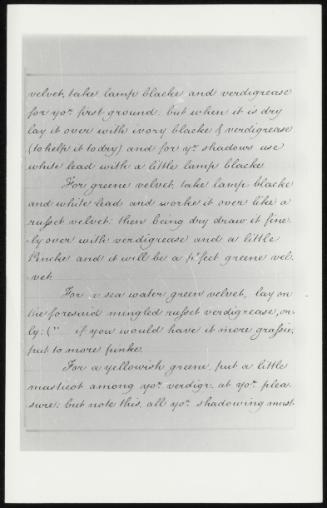 velvet, take lamp blacke and verdigrease
for yor. first ground: but when it is dry
lay it over with ivory blacke & verdigrease
(to help it to dry) and for yr. shadows use
white lead with a little lamp blacke
For greene velvet, take lamp blacke
and white lead and worke it over like a
russet velvet: then being dry draw it fine
-ly over with verdigrease and a little
Pincke and it will be a p'fect greene vel.
vet
For a sea water green velvet, lay on
the foresaid mingled russet verdigrease, on-
ly: (" if you would have it more grassie,
put to more pinke.
For a yellowish greene, put a little
masticot among yor. verdigr. at yor. plea.
sure: but note this, all yor. shadowing must